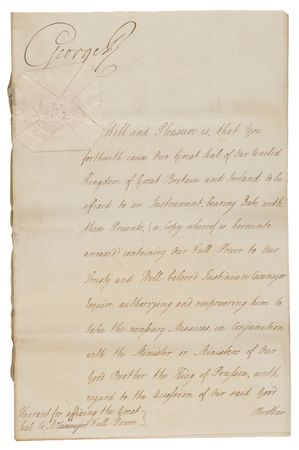 George R
Will and Pleasure is, that You
forthwith cause Our Great Seal of Our United
Kingdom of Great Britain and Ireland to be
affixed to an Instrument, bearing Date with
these Presents, (a Copy whereof is hereunto
annexed) containing Our Full Power to Our
Trusty and Well beloved Justinian Casamajor
Esquire, authorizing and empowering him to
take the necessary Measures, in Conjunction
with the Minister or Ministers of Our
Good Brother the King of Prussia, with
regard to the Accession of Our said Good
Brother
Warrant for affixing the Great
Seal to Mr Casamajor's Full Power.